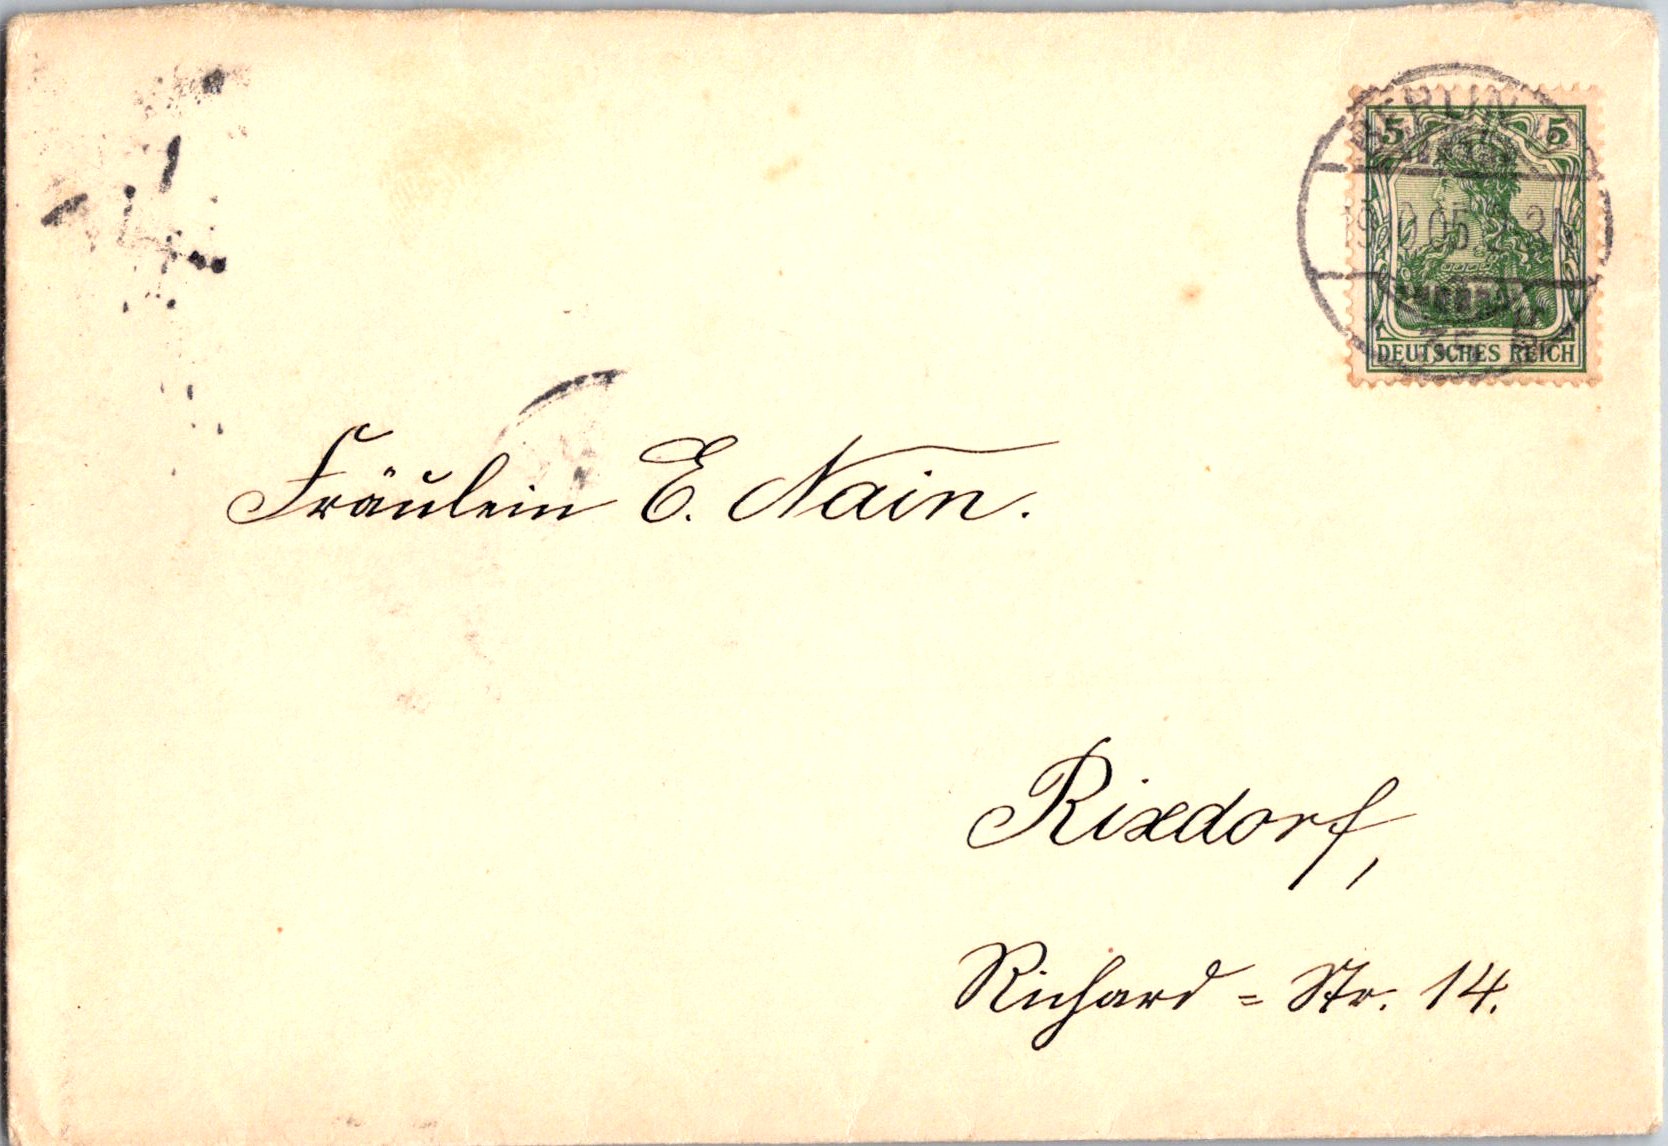 BERLIN
5 5
05
DEUTSCHES REICH
Fräulein E. Nain.
Rixdorf,
Richard=Str. 14.